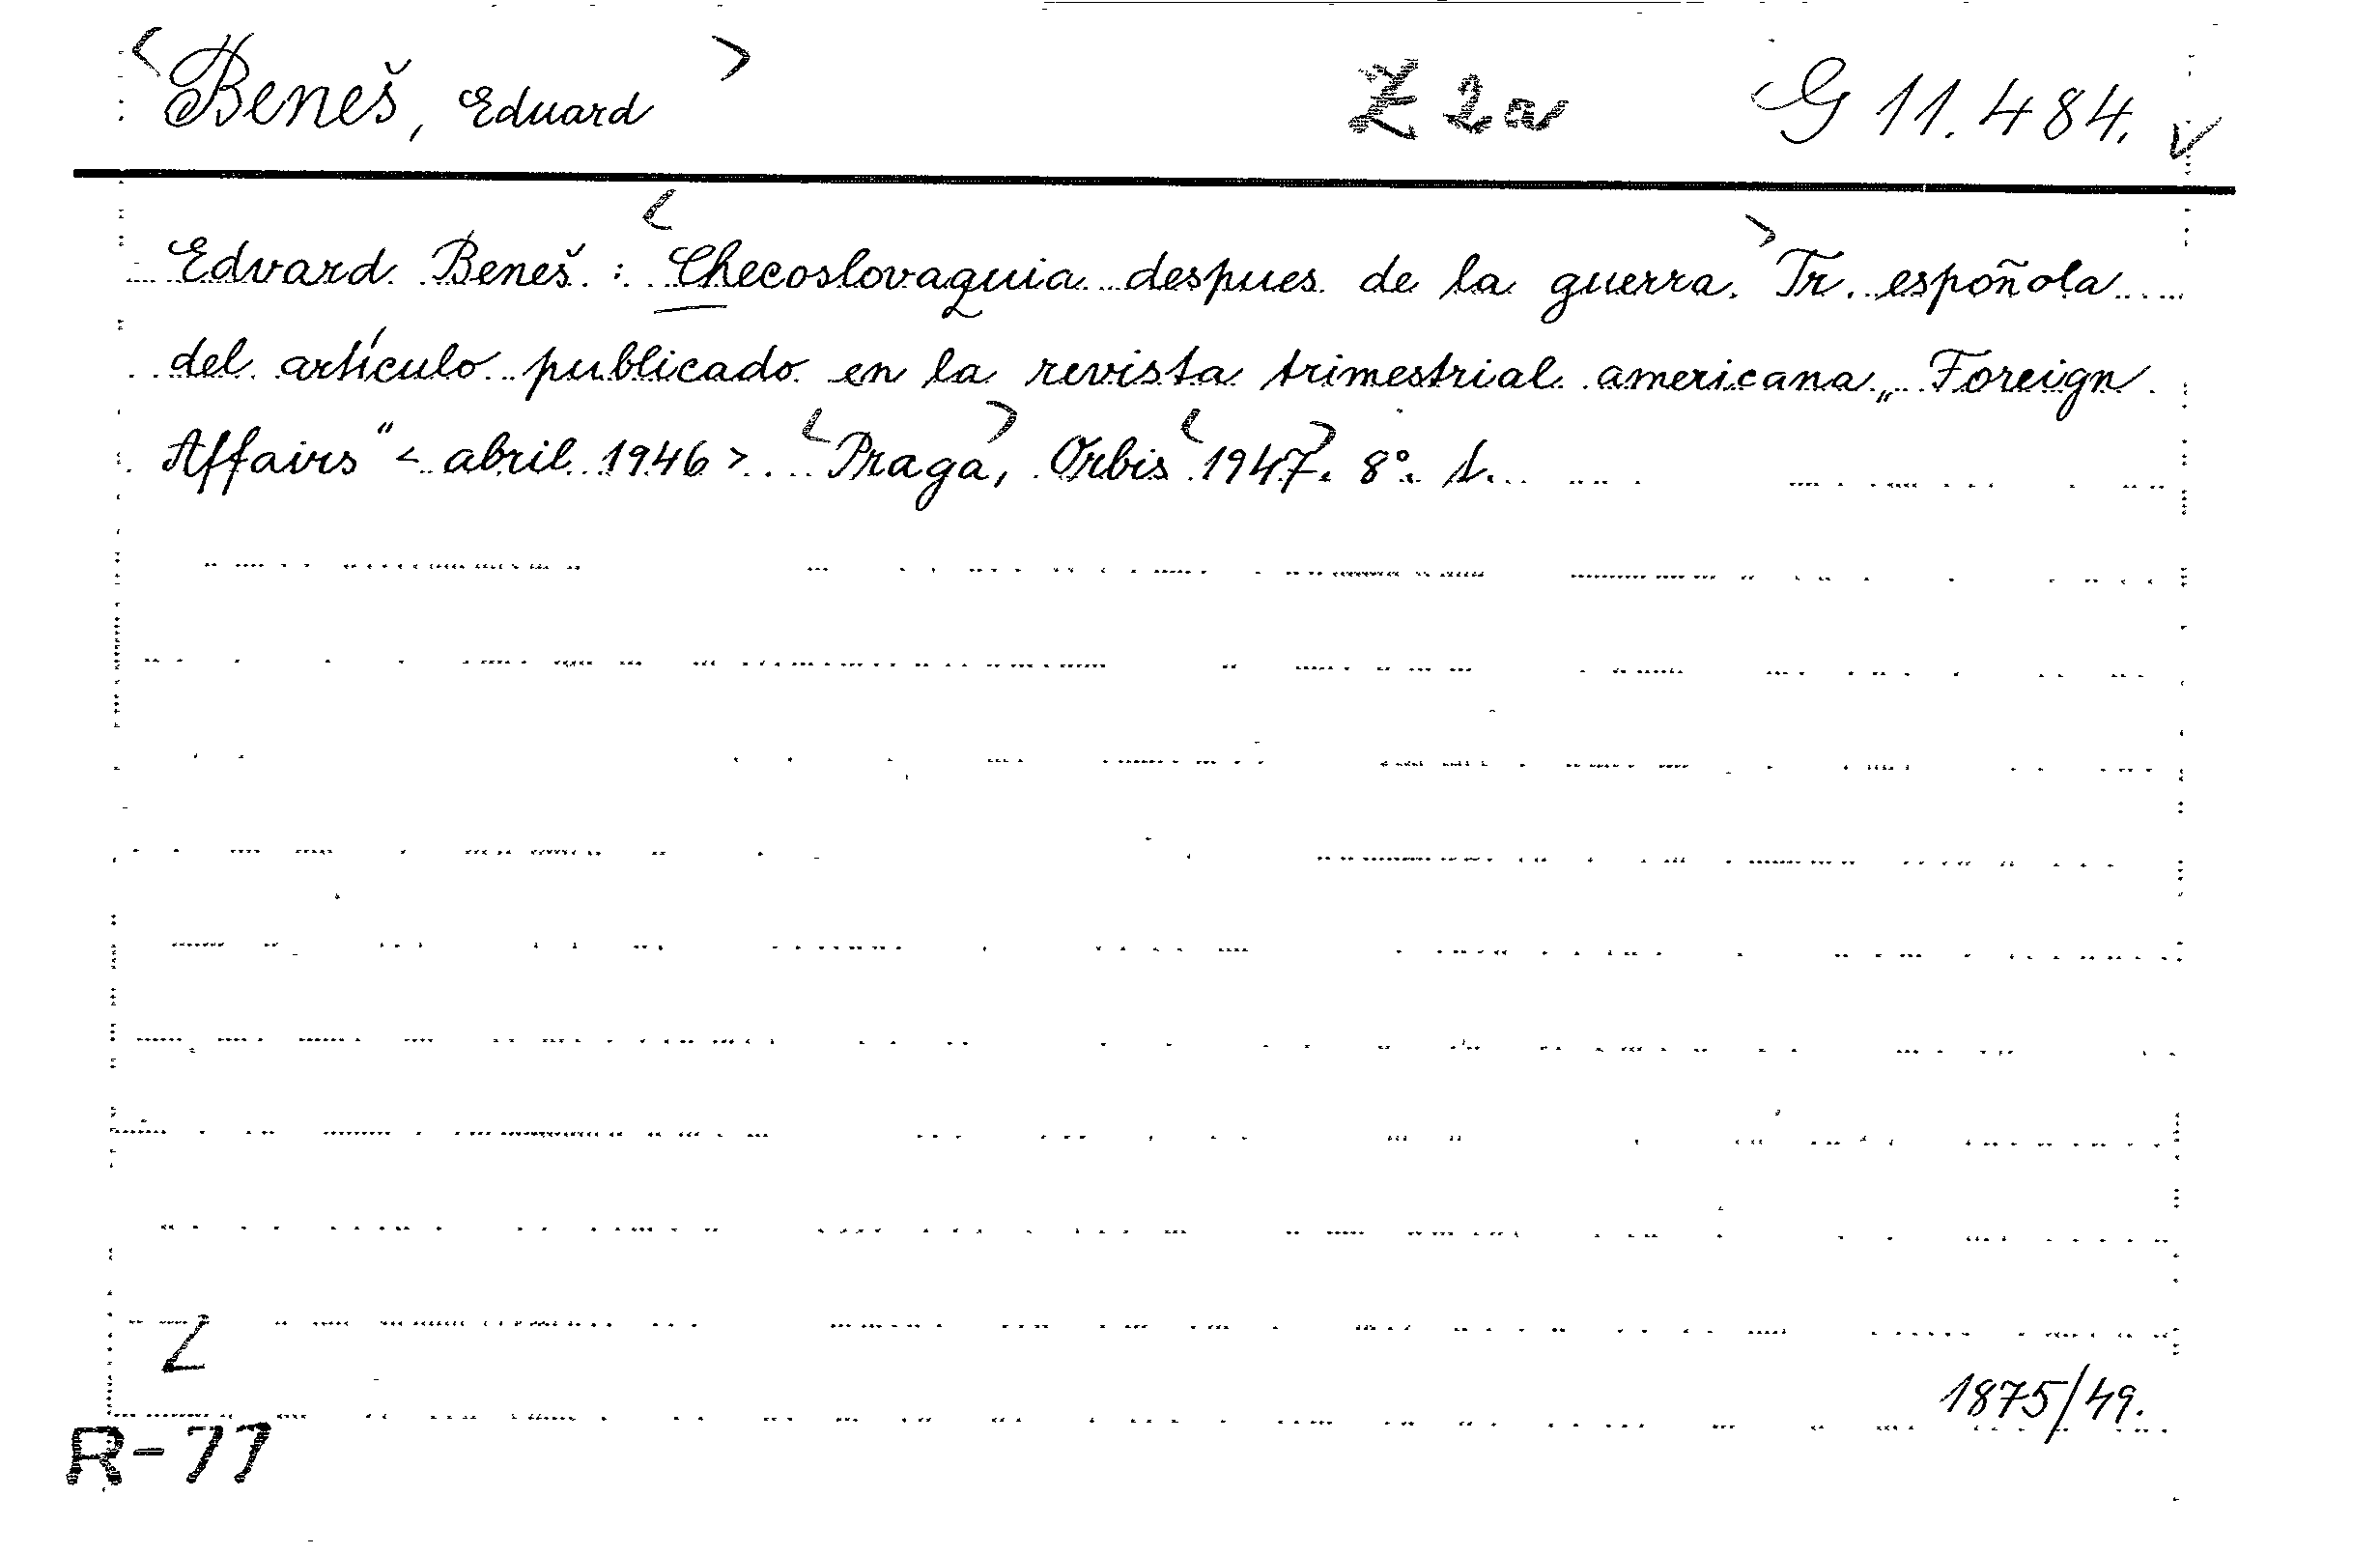 <Beneš, Eduard> Z 2a G 11.484. v
Edvard Beneš : <Checoslovaquia despues de la guerra.> Tr. espoñola
del artículo publicado en la revista trimestrial americana „Foreign
Affairs“ <abril 1946>. <Praga>, Orbis <1947>. 8°. 1.
Z
1875/49.
R-77